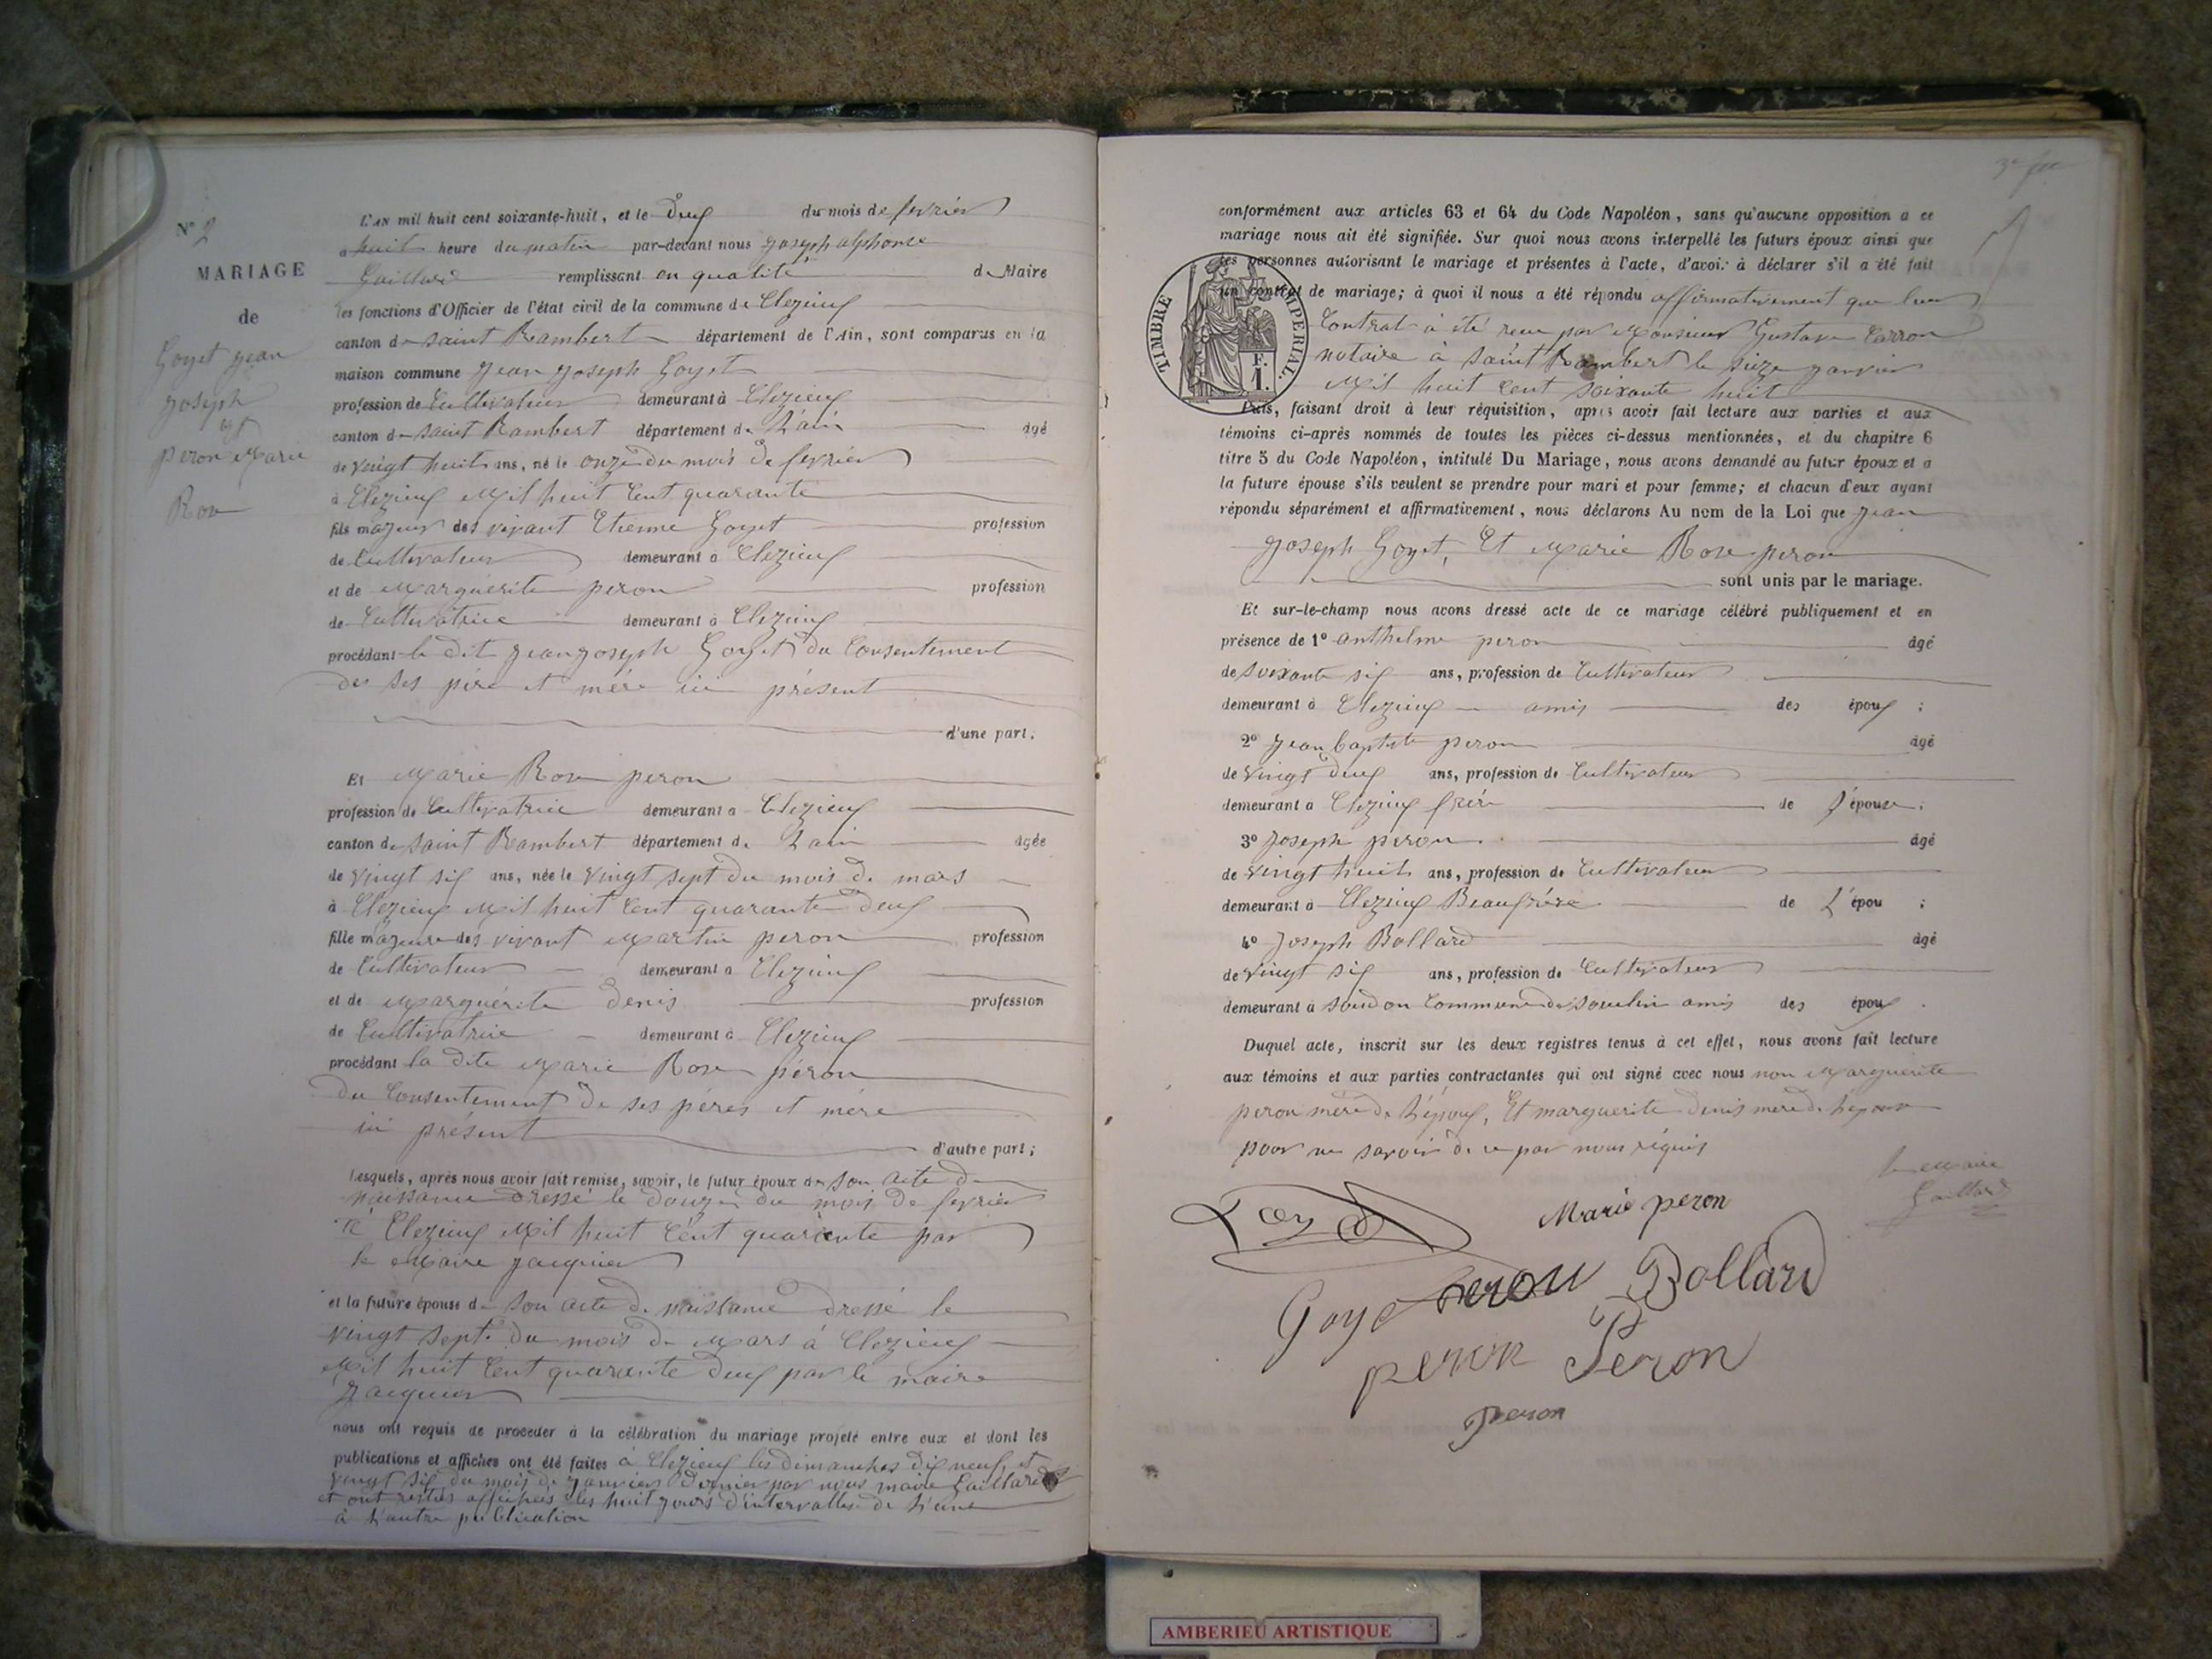 N° 2
MARIAGE
de
Goyet jean
joseph
et
peron Marie
Rose
L'AN mil huit cent soixante-huit, et le deux du mois de fevrier
a huit heure du matin par-devant nous joseph alphonse
Gaillard remplissant en qualité de Maire
les fonctions d'Officier de l'état civil de la commune de Clezieux
canton de saint Rambert département de l'Ain, sont comparus en la
maison commune jean joseph Goyet
profession de Cultivateur demeurant à Clezieux
canton de saint Rambert département de L'ain âgé
de vingt huit ans, né le onze du mois de fevrier
à Clezieux Mil huit Cent quarante
fils majeur des vivant Etienne Goyet profession
de Cultivateur demeurant à Clezieux
et de Marguerite peron profession
de Cultivatrice demeurant à Clezieux
procédant le dit jean joseph Goyet du Consentement
des ses père et mère ici présent
d'une part;
Et Marie Rose peron
profession de Cultivatrice demeurant à Clezieux
canton de saint Rambert département de L'ain âgée
de vingt six ans, née le vingt sept du mois de mars
à Clezieux Mil huit Cent quarante deux
fille majeure des vivant Martin peron profession
de Cultivateur demeurant à Clezieux
et de Marguérite Denis profession
de Cultivatrice demeurant à Clezieux
procédant la dite Marie Rose péron
du Consentement de ses péres et mére
ici présent d'autre part;
Lesquels, après nous avoir fait remise, savoir, le futur époux de son acte de
naissance dressé le douze du mois de fevrier
à Clezieux Mil huit Cent quarante par
le Maire jacquier
et la future épouse de son acte de naissance dressé le
vingt sept du mois de Mars à Clezieux
Mil huit Cent quarante deux par le maire
jacquier
nous ont requis de procéder à la célébration du mariage projeté entre eux et dont les
publications et affiches ont été faites à Clezieux les dimanches dix neuf et
vingt six du mois de janvier dernier par nous maire Gaillard
et ont restés affichées les huit jours d'intervalles de L'une
à L'autre publication
conformément aux articles 63 et 64 du Code Napoléon, sans qu'aucune opposition à ce
mariage nous ait été signifiée. Sur quoi nous avons interpellé les futurs époux ainsi que
les personnes autorisant le mariage et présentes à l'acte, d'avoir à déclarer s'il a été fait
un contrat de mariage; à quoi il nous a été répondu affirmativement que leur
Contrat à été reçu par Monsieur Gustave Carron
notaire à saint Rambert le sieze janvier
Mil huit Cent soixante huit
TIMBRE IMPERIAL
F.
1.
Puis, faisant droit à leur réquisition, après avoir fait lecture aux parties et aux
témoins ci-après nommés de toutes les pièces ci-dessus mentionnées, et du chapitre 6
titre 5 du Code Napoléon, intitulé Du Mariage, nous avons demandé au futur époux et à
la future épouse s'ils veulent se prendre pour mari et pour femme; et chacun d'eux ayant
répondu séparément et affirmativement, nous déclarons Au nom de la Loi que jean
joseph Goyet, Et Marie Rose peron
sont unis par le mariage.
Et sur-le-champ nous avons dressé acte de ce mariage célébré publiquement et en
présence de 1° anthelme peron âgé
de soixante six ans, profession de Cultivateur
demeurant à Clezieux amis des époux ;
2° jean baptiste peron âgé
de vingt deux ans, profession de Cultivateur
demeurant à Clezieux frére de l'épouse ;
3° joseph peron âgé
de vingt huit ans, profession de Cultivateur
demeurant à Clezieux Beaufrére de L'épou ;
4° joseph Bollard âgé
de vingt six ans, profession de Cultivateur
demeurant à soudon Commune de souclin amis des époux .
Duquel acte, inscrit sur les deux registres tenus à cet effet, nous avons fait lecture
aux témoins et aux parties contractantes qui ont signé avec nous non Marguerite
peron mère de L'époux, Et marguerite denis mere de L'épouse
pour ne savoir de ce par nous réquis
le Maire
Gaillard
Marie peron
Goyet
peron
Bollard
peron
Peron
peron
AMBERIEU ARTISTIQUE